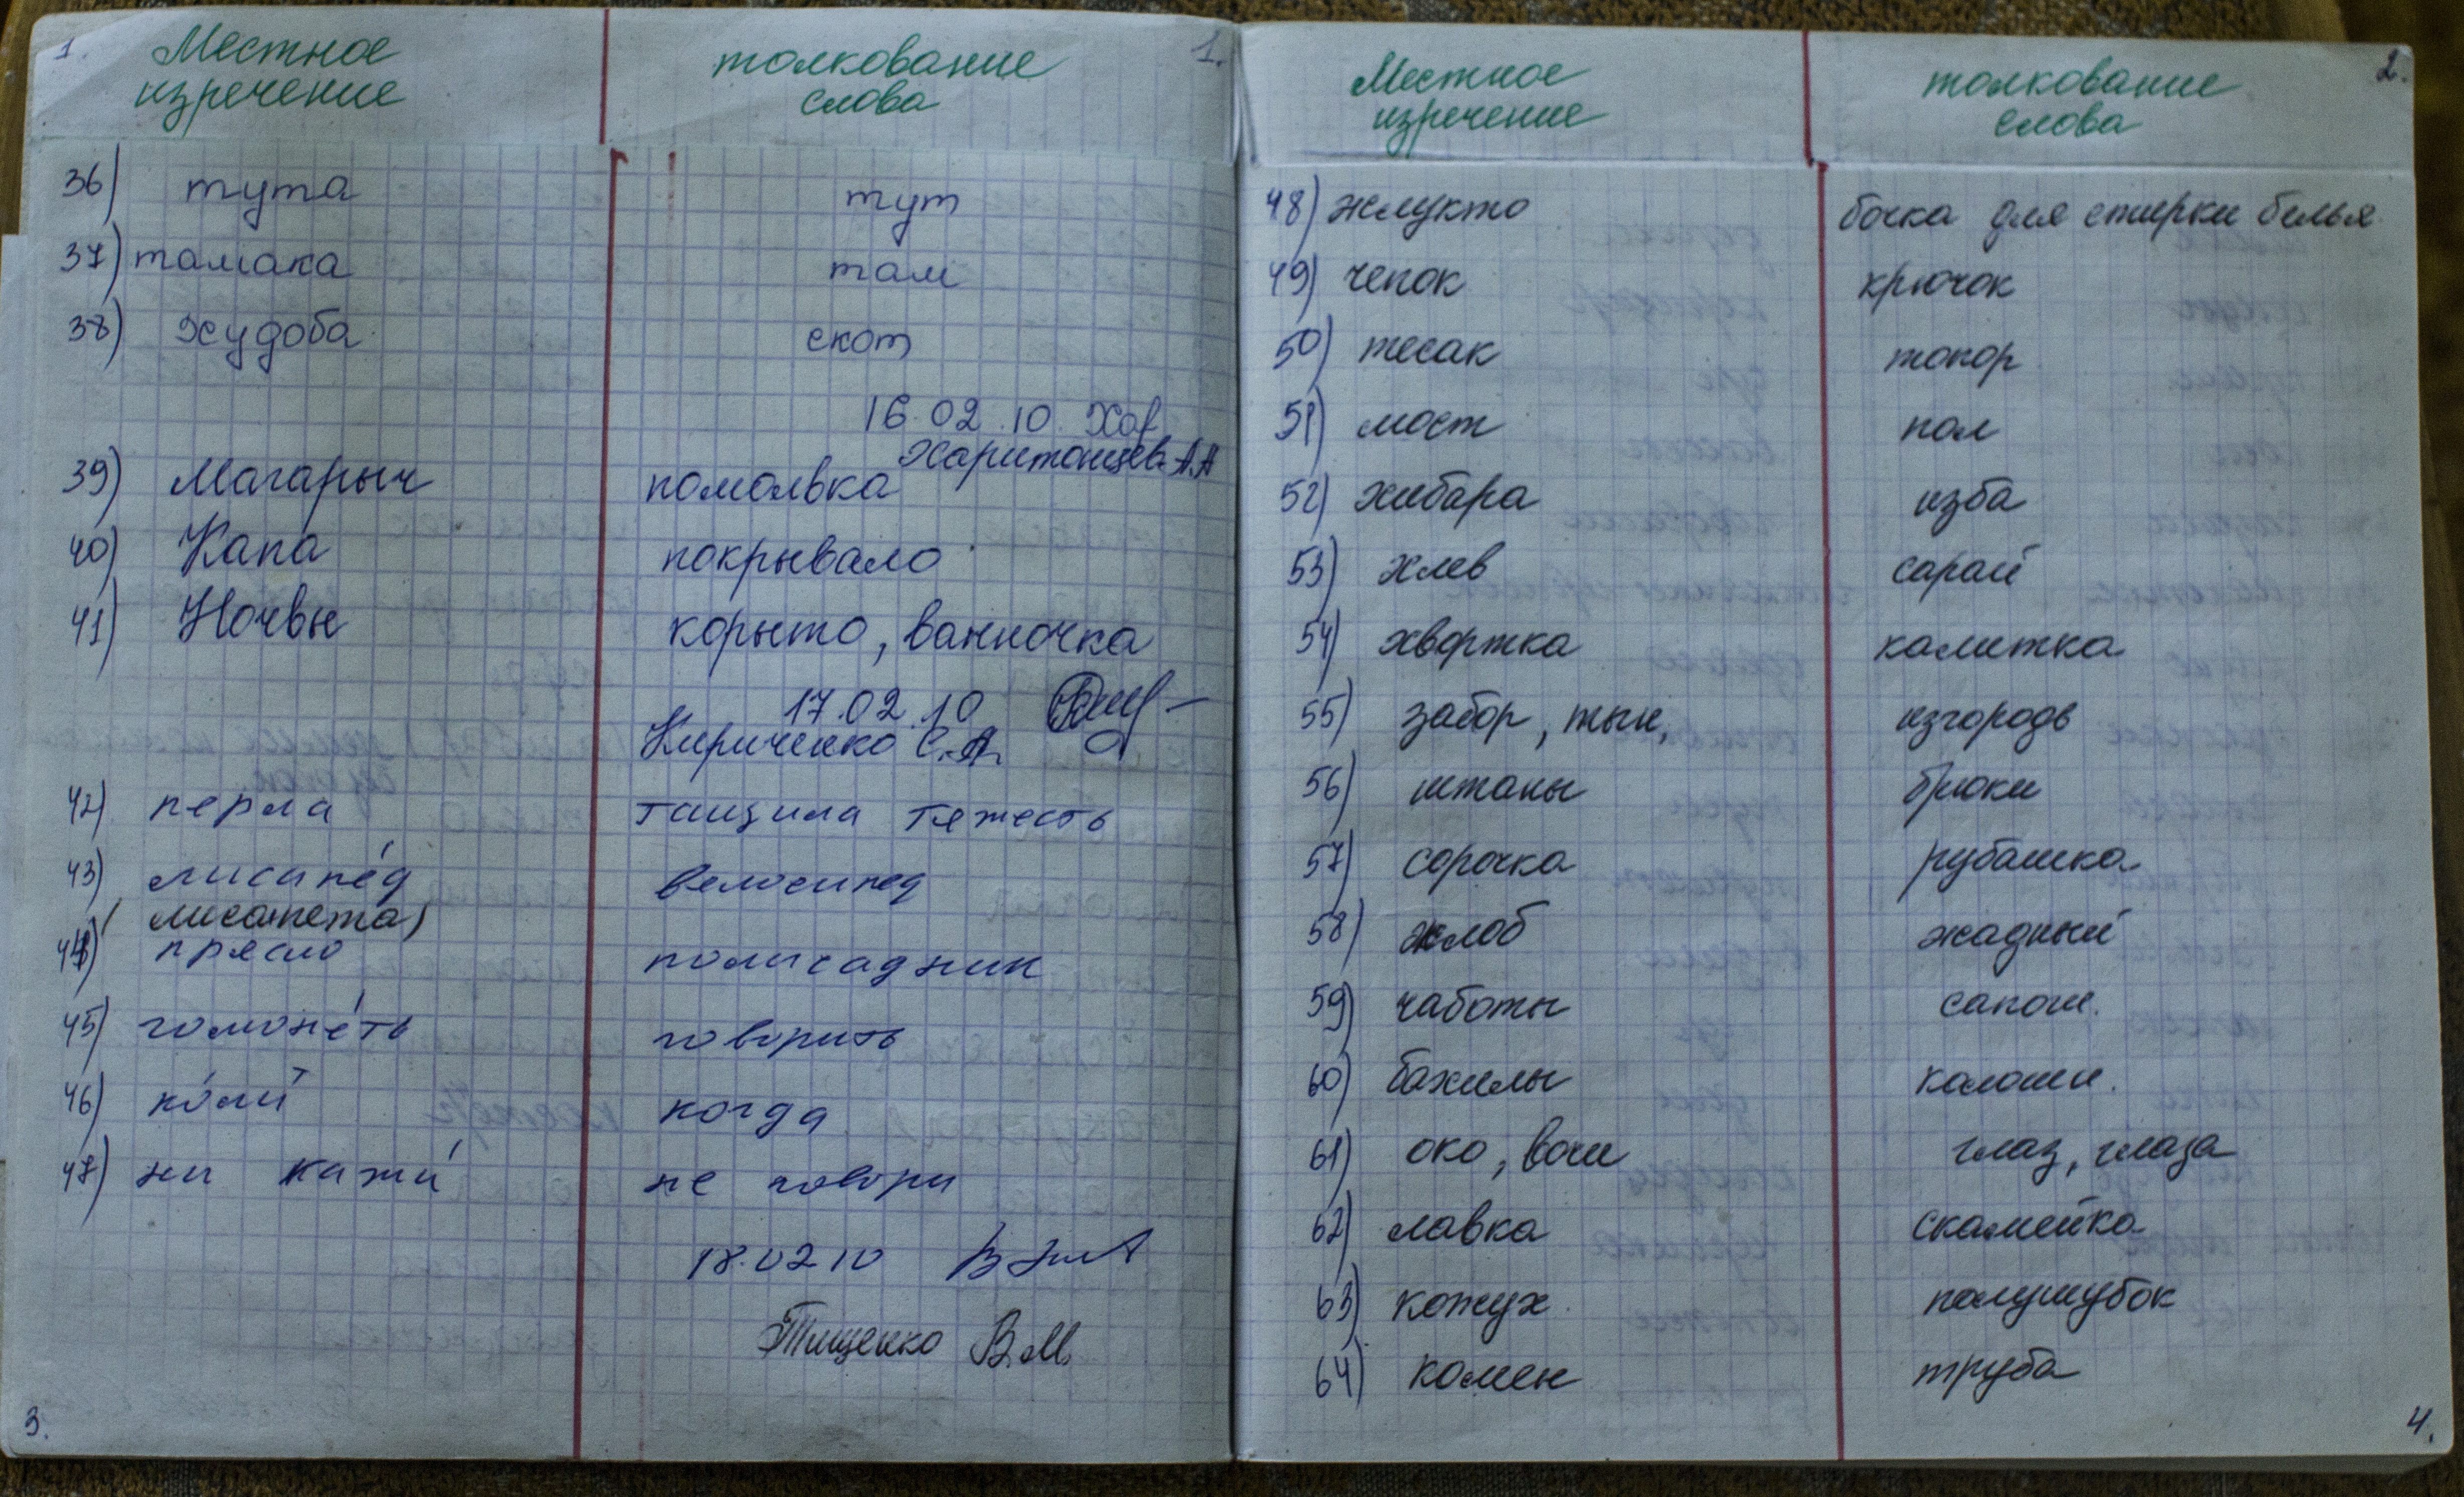 1. Местное толкование 1.
изречение слова
36) тута тут
37) тамака там
38) худоба скот
16.02.10. Хар
Харитонцев А.А
39) Магарыч помолвка
40) Капа покрывало
41) Ночвы корыто, ванночка
17.02.10
Кириченко С.А.
42) перла тащила тяжесть
43) лисапе́д велосипед
(лисапета)
44) прясло полисадник
45) гомоне́ть говорить
46) ко́лий когда
47) ни кажи́ не говори
18.02 10
Тищенко В.М.
3.
Местное толкование 2.
изречение слова
48) жлукто бочка для стирки белья
49) чепок крючок
50) тесак топор
51) мост пол
52) хибара изба
53) хлев сарай
54) хвортка калитка
55) забор, тын, изгородь
56) штаны брюки
57) сорочка рубашка
58) жлоб жадный
59) чаботы сапоги.
60) бахилы калоши.
61) око, вочи глаз, глаза
62) лавка скамейка
63) кожух полушубок
64) комен труба
4.